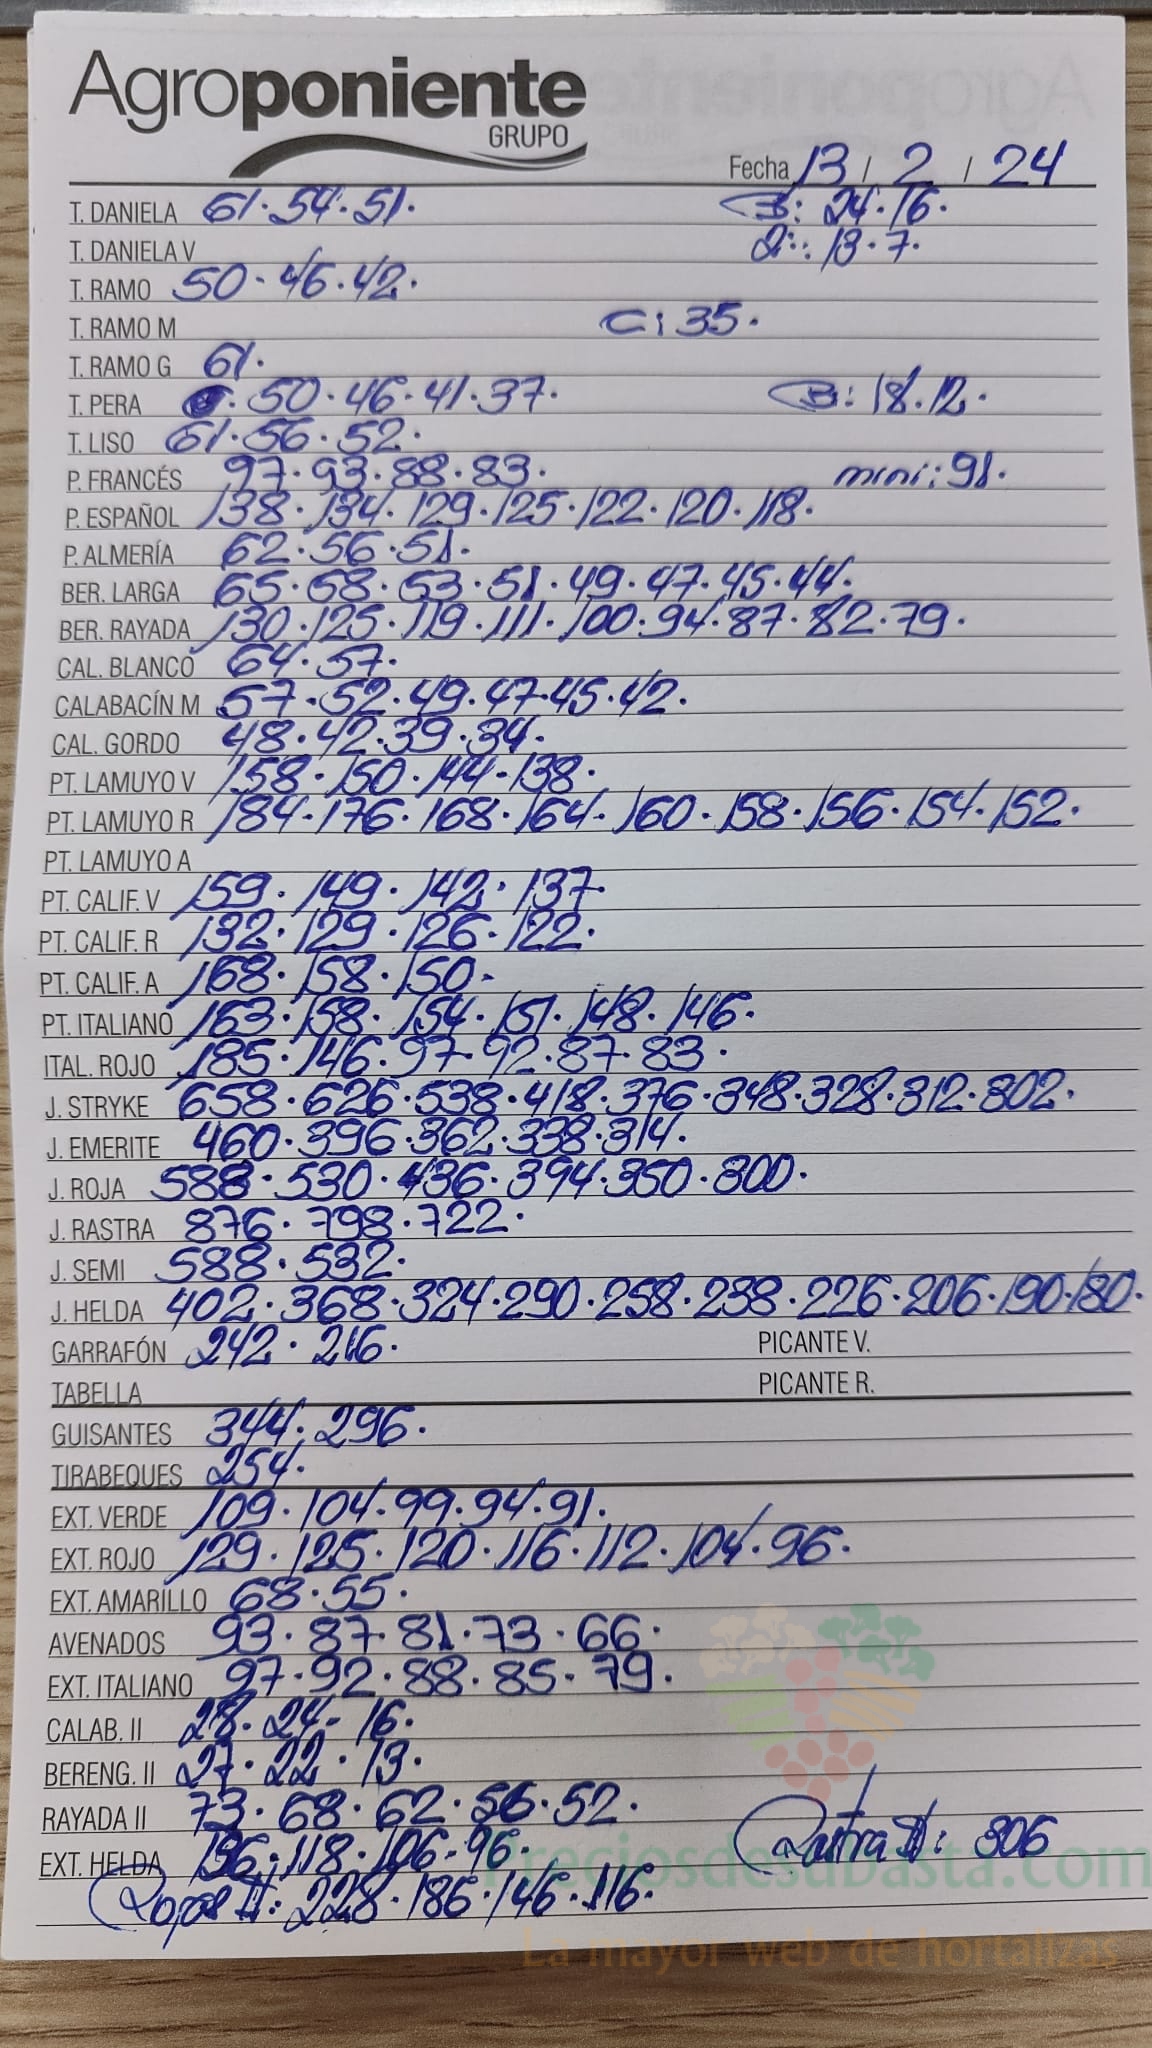 Agroponiente
GRUPO
Fecha 13 / 2 / 24
T. DANIELA 61·54·51· B: 24·16·
T. DANIELA V 2ª: 13·7·
T. RAMO 50·46·42·
T. RAMO M C: 35·
T. RAMO G 61·
T. PERA ·50·46·41·37· B: 18·12·
T. LISO 61·56·52·
P. FRANCÉS 97·93·88·83· mini: 91·
P. ESPAÑOL 138·134·129·125·122·120·118·
P. ALMERÍA 62·56·51·
BER. LARGA 65·58·53·51·49·47·45·44·
BER. RAYADA 130·125·119·111·100·94·87·82·79·
CAL. BLANCO 64·57·
CALABACÍN M 57·52·49·47·45·42·
CAL. GORDO 48·42·39·34·
PT. LAMUYO V 158·150·144·138·
PT. LAMUYO R 184·176·168·164·160·158·156·154·152·
PT. LAMUYO A
PT. CALIF. V 159·149·142·137·
PT. CALIF. R 132·129·126·122·
PT. CALIF. A 168·158·150·
PT. ITALIANO 163·158·154·151·148·146·
ITAL. ROJO 185·146·97·92·87·83·
J. STRYKE 658·626·538·418·376·348·328·312·302·
J. EMERITE 460·396·362·338·314·
J. ROJA 588·530·436·394·350·300·
J. RASTRA 876·798·722·
J. SEMI 588·532·
J. HELDA 402·368·324·290·258·238·226·206·190·180·
GARRAFÓN 242·216· PICANTE V.
TABELLA PICANTE R.
GUISANTES 344·296·
TIRABEQUES 254·
EXT. VERDE 109·104·99·94·91·
EXT. ROJO 129·125·120·116·112·104·96·
EXT. AMARILLO 68·55·
AVENADOS 93·87·81·73·66·
EXT. ITALIANO 97·92·88·85·79·
CALAB. II 28·24·16·
BERENG. II 27·22·13·
RAYADA II 73·68·62·56·52·
EXT. HELDA 136·118·106·96· Rastra II: 306
Rojas II: 228·186·146·116·
Preciosdesubasta.com
La mayor web de hortalizas